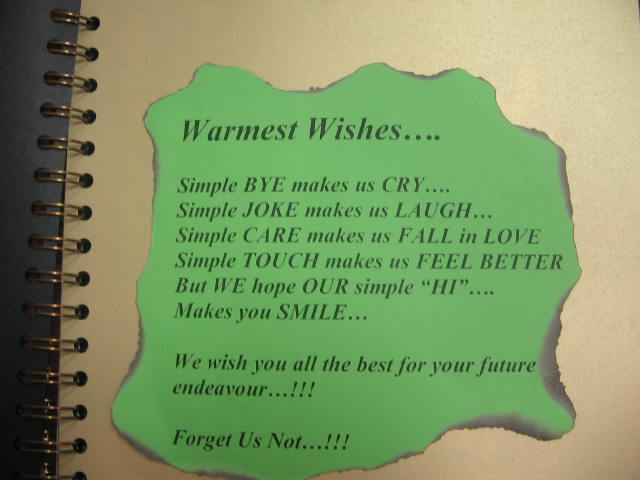 Warmest Wishes….
Simple BYE makes us CRY….
Simple JOKE makes us LAUGH…
Simple CARE makes us FALL in LOVE
Simple TOUCH makes us FEEL BETTER
But WE hope OUR simple “HI”….
Makes you SMILE…
We wish you all the best for your future
endeavour…!!!
Forget Us Not…!!!